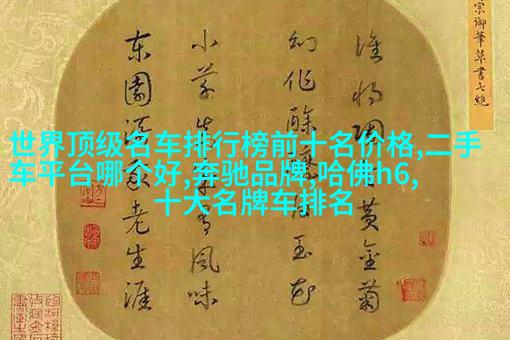 世界顶级名车排行榜前十名价格,二手
车平台哪个好,奔驰品牌,哈佛h6,
十大名牌车排名
宗御筆草書七絕
誰將陶黃金菊
幻作酴花
小草風味
東園添老生涯